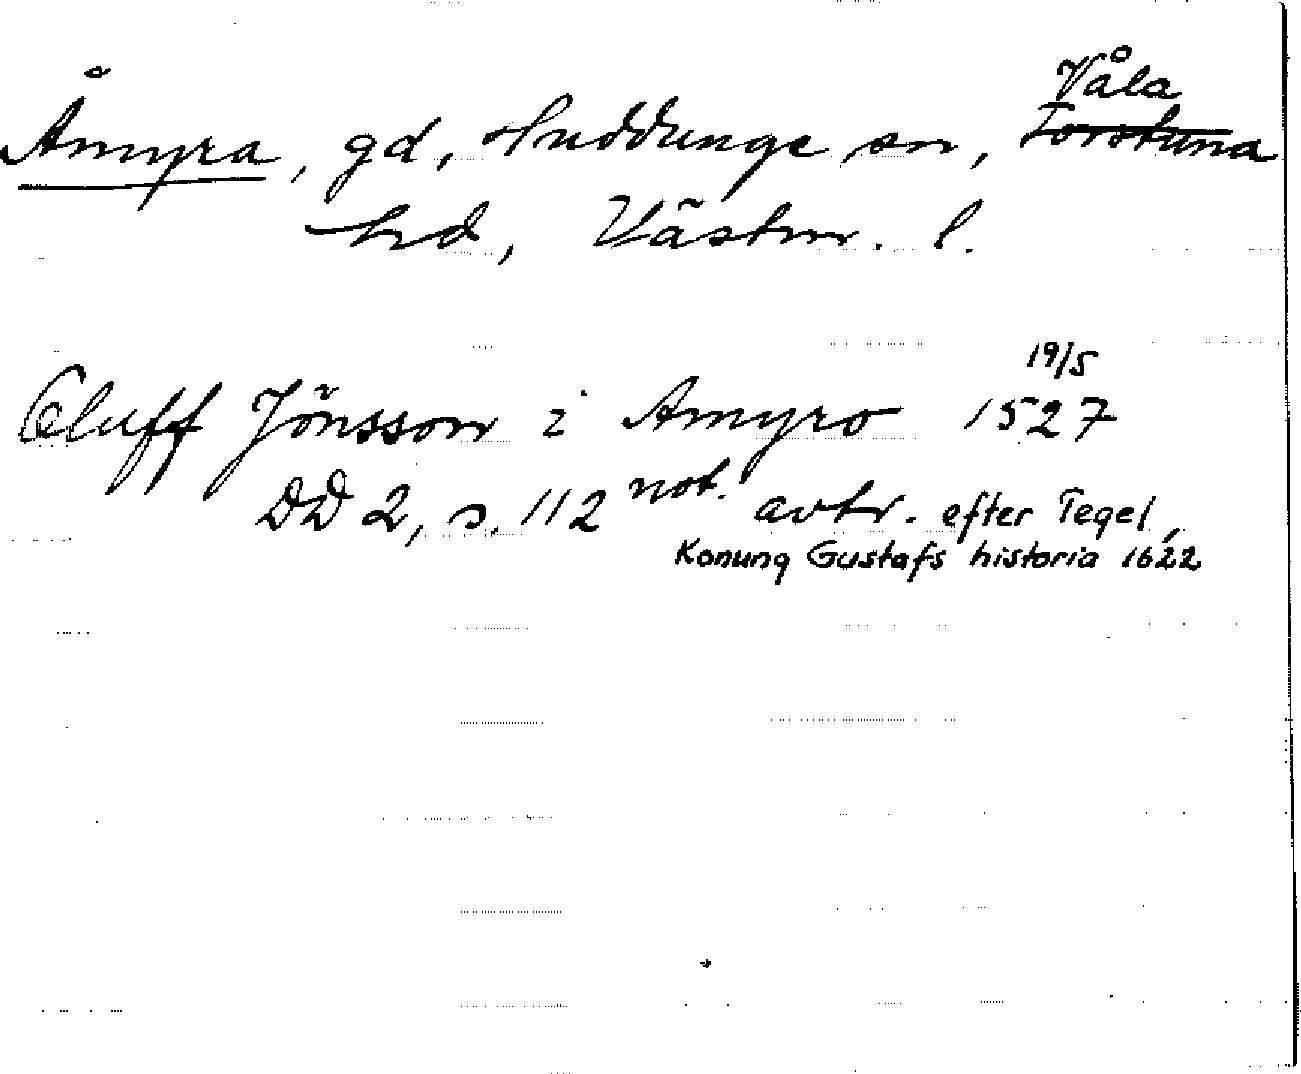 Våla
Åmyra, gd, Huddunge sn, Torstuna
hd, Västm. l.
19/5
Oluff Jönsson i Amyro 1527
DD 2, s. 112 not. avtr. efter Tegel,
Konung Gustafs historia 1622